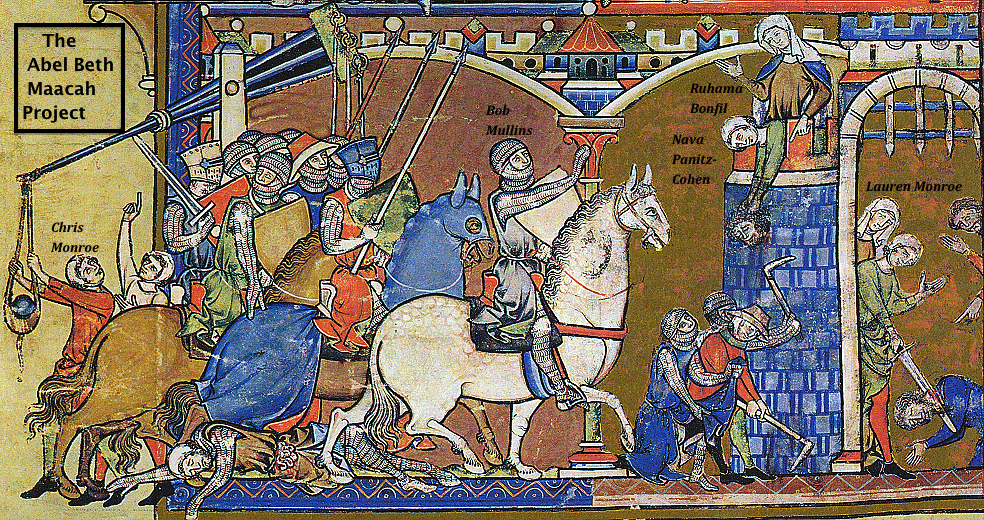 The
Abel Beth
Maacah
Project
Chris
Monroe
Bob
Mullins
Ruhama
Bonfil
Nava
Panitz-
Cohen
Lauren Monroe